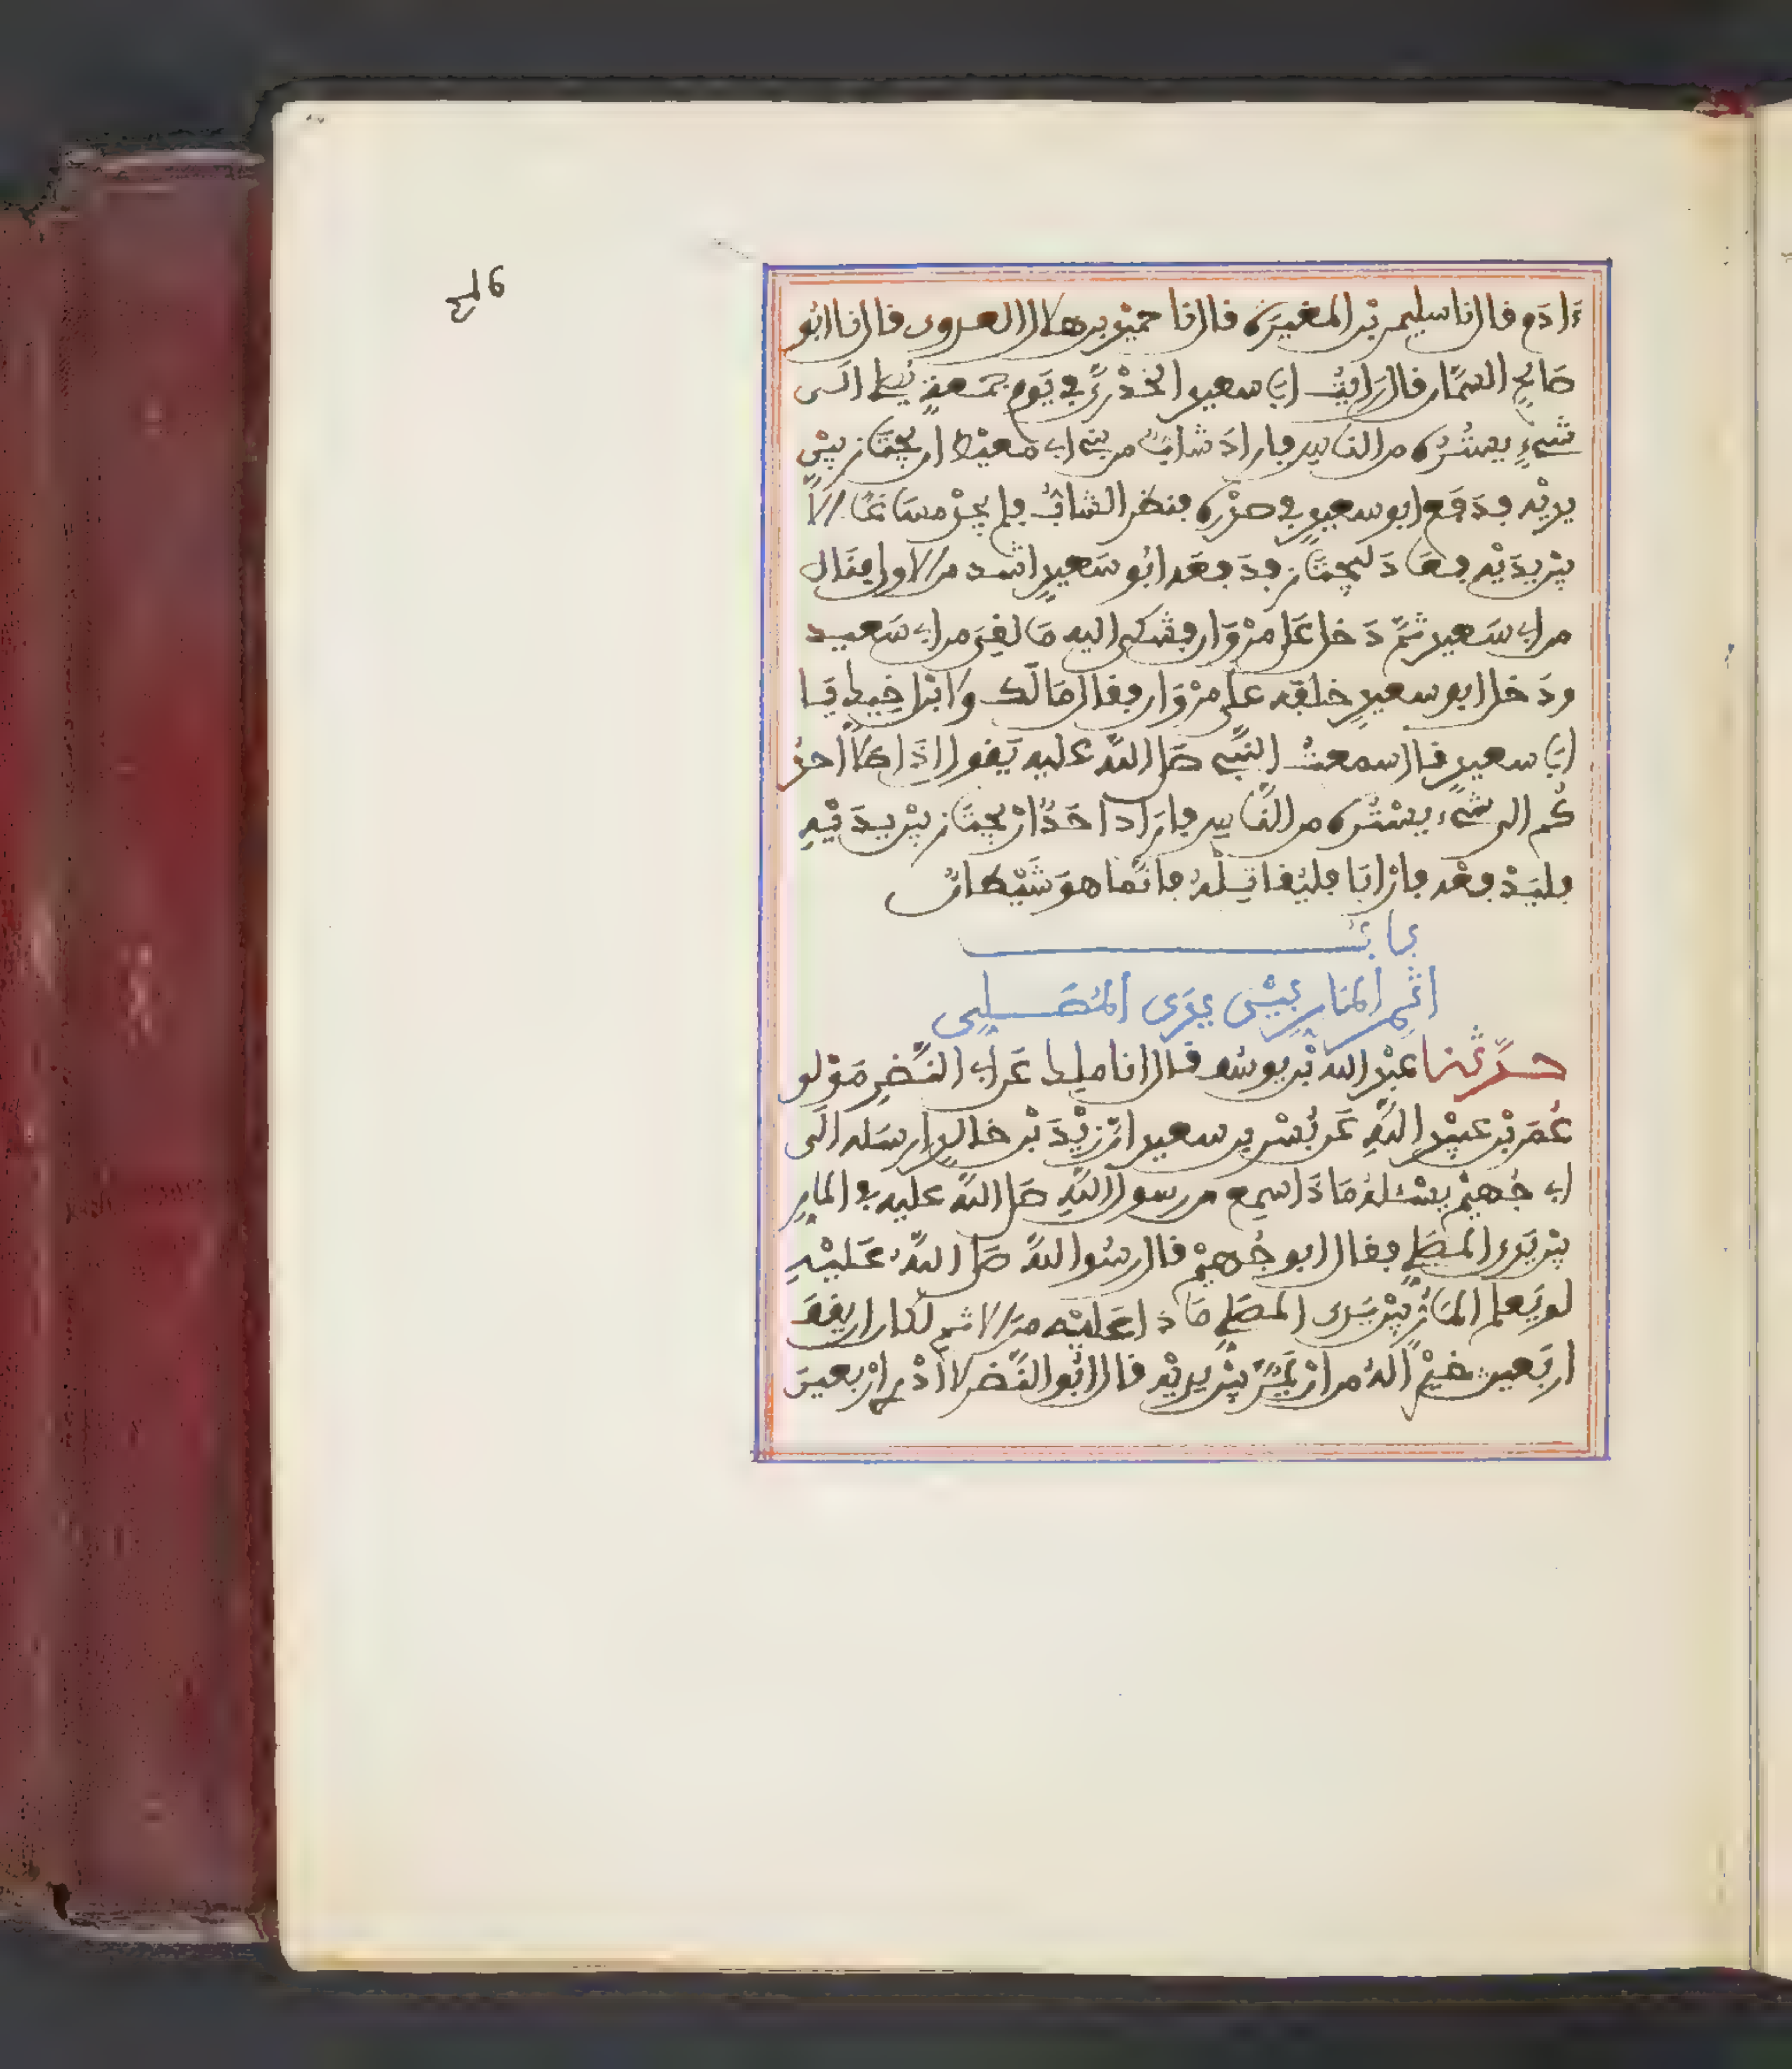 ءادم قال نا سليمن بن المغيرة قال نا حميد بن هلال العدوى قال نا ابو
صالح السمان قال رايت ابا سعيد الخدرى في يوم جمعة يصلى الى
شىء يستره من الناس فاراد شاب من بنى ابى معيط ان يجتاز بين
يديه فدفع ابو سعيد في صدره فنظر الشاب فلم يجد مساغا الا
بين يديه فعاد ليجتاز فدفعه ابو سعيد اشد من الاولى فنال
من ابى سعيد ثم دخل على مروان فشكى اليه ما لقى من ابى سعيد
ودخل ابو سعيد خلفه على مروان فقال مالك ولابن اخيك يا
ابا سعيد قال سمعت النبى صلى الله عليه يقول اذا صلى احد
كم الى شىء يستره من الناس فاراد احد ان يجتاز بين يديه
فليدفعه فان ابا فليقاتله فانما هو شيطان
باب
اثم المار بين يدى المصلى
حدثنا عبد الله بن يوسف قال انا ملك عن ابى النضر مولى
عمر بن عبيد الله عن بسر بن سعيد ان زيد بن خالد ارسله الى
ابى جهيم يسئله ماذا سمع من رسول الله صلى الله عليه في المار
بين يدى المصلى فقال ابو جهيم قال رسول الله صلى الله عليه
لو يعلم المار بين يدى المصلى ماذا عليه من الاثم لكان ان يقف
اربعين خير اله من ان يمر بين يديه قال ابو النضر لا ادرى اربعين